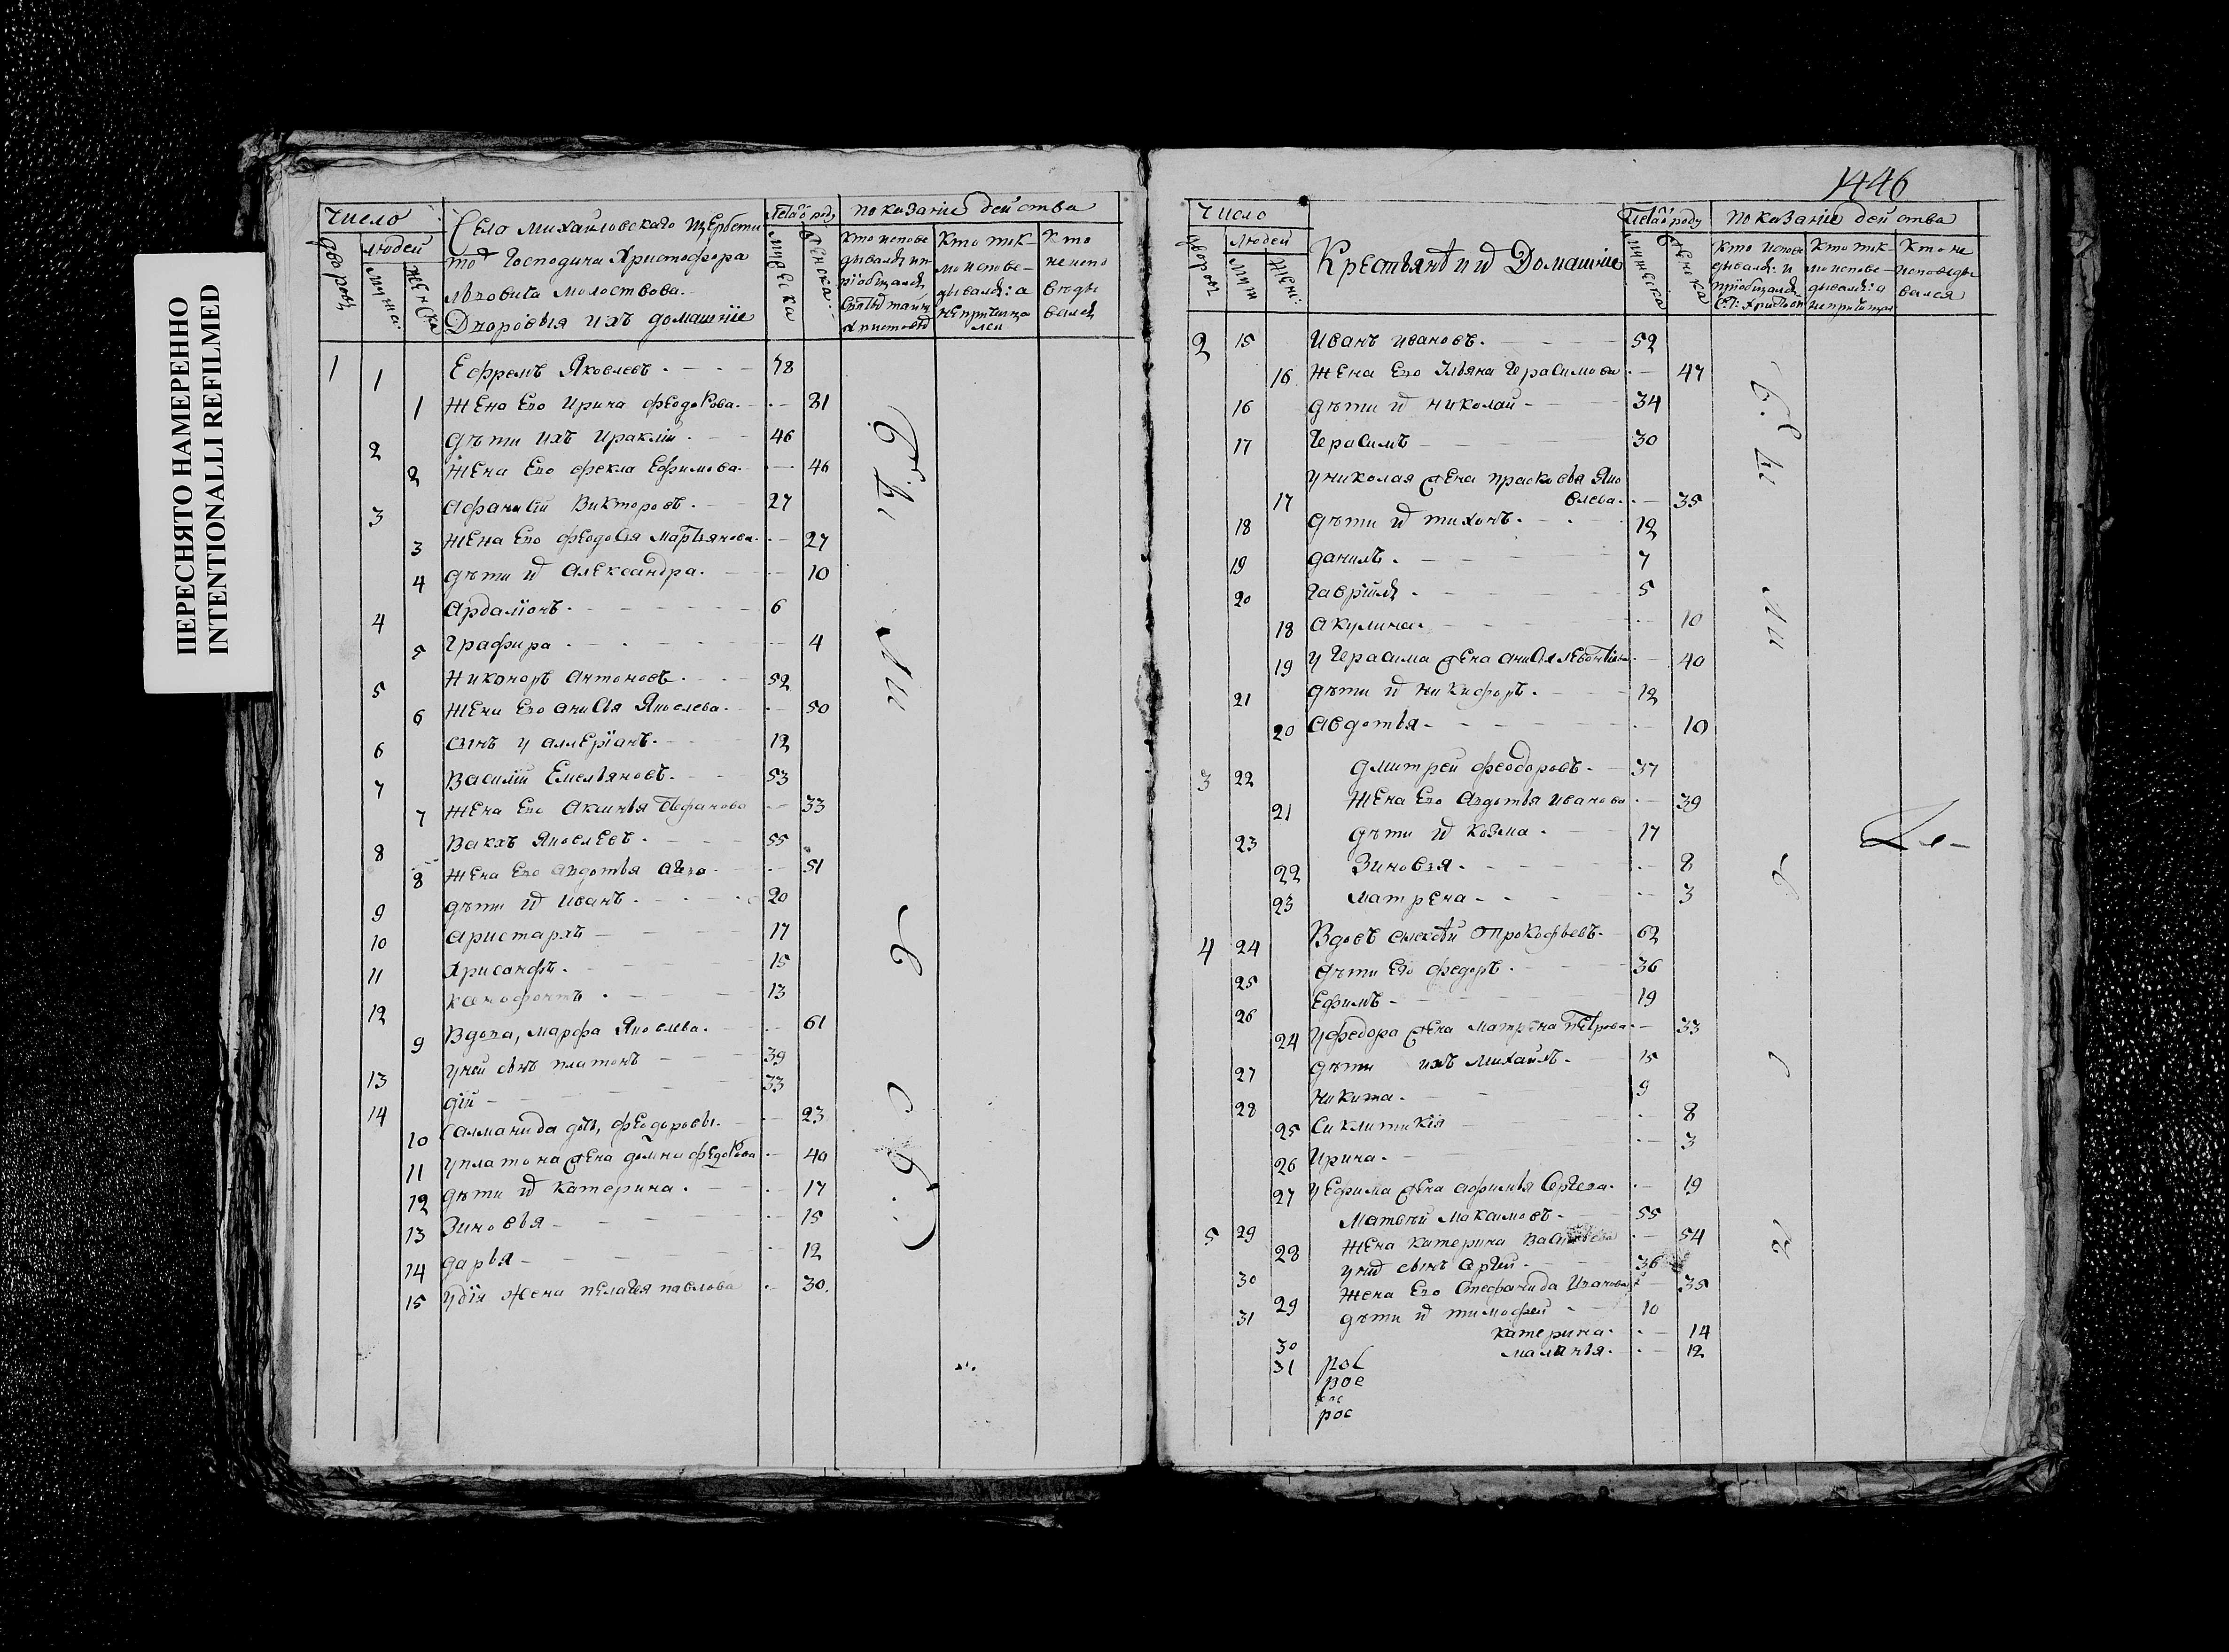 ПЕРЕСНЯТО НАМЕРЕННО
INTENTIONALLI REFILMED
Число
людей
Село Михайловскаго
тоⷤ Господина Христофора
Львовича Молоствова.
Дворовыя ихъ домашніе
показаніе действа
Кто испове
дывался
Кто ток-
мо испове-
дывался: а
не причища
лси
Кто
не испо
веды
вался
1 1 Ефремъ Яковлевъ. 78
1 жена Его Ирина 81
2 дѣти ихъ Ираклій. 46
2 жена Его фекла Ефимова. 46
3 Афанасій Викторовъ. 27
3 жена Его феодосія Мартьянова. 27
4 дѣти иⷯ Александра. 10
4 Ардаліонъ. 6
5 Графира 4
5 Никоноръ Антоновъ. 52
6 жена Его Анисія Яковлева. 50
6 сынъ у 12
7 Василій Емельяновъ. 53
7 жена Его Аксинья 33
8 Вакхъ Яковлевъ. 55
8 жена Его Авдотья 51
9 дѣти иⷯ Иванъ. 20
10 Аристархъ 17
11 Хрисанфъ. 15
12 Ксенофонтъ. 13
9 Вдова, марфа Яковлева. 61
13 у ней сынъ платонъ 39
14 дій 33
10 Салманида 23
11 у платона жена домна 40
12 дѣти иⷯ катерина. 17
13 Зиновья 15
14 дарья 12
15 у дія жена пелагея павлова 30.
1446
Число
людей
Крестьянѣ иⷯ Домашніе
показаніе действа
Кто испове
дывался: и
пріобщался
Кто ток-
мо испове-
дывался: а
Кто не
исповеды
вался
2 15 Иванъ Ивановъ. 52
16 жена Его Ульяна Герасимова 47
16 дѣти иⷯ николай 34
17 Герасимъ 30
у николая жена прасковья Яко
17 влева. 35
18 дѣти иⷯ тихонъ. 12
19 данилъ. 7
20 Гавріилъ. 5
18 Акулина. 10
19 у Герасима жена 40
21 дѣти иⷯ никифоръ. 12
20 Авдотья 10
3 22 дмитрей феодоровъ. 37
21 жена Его Авдотья Иванова 39
23 дѣти иⷯ козма. 17
22 Зиновья. 8
23 матрена 3
4 24 Вдовъ Алексѣй Прокофьевъ. 62
25 дѣти Его федоръ. 36
26 Ефимъ 19
24 у федора жена матрена петрова 33
27 дѣти ихъ михайлъ. 15
28 никита. 9
25 Сиклитикія 8
26 Ирина. 3
27 у Ефима жена афимья 19
5 29 матвѣй максимовъ. 55
28 жена катерина 54
30 у ниⷯ сынъ 36
29 жена Его Стефанида Иванова 35
31 дѣти иⷯ тимофей 10
30 катерина. 14
31 маланья. 12
рос
рое
рос